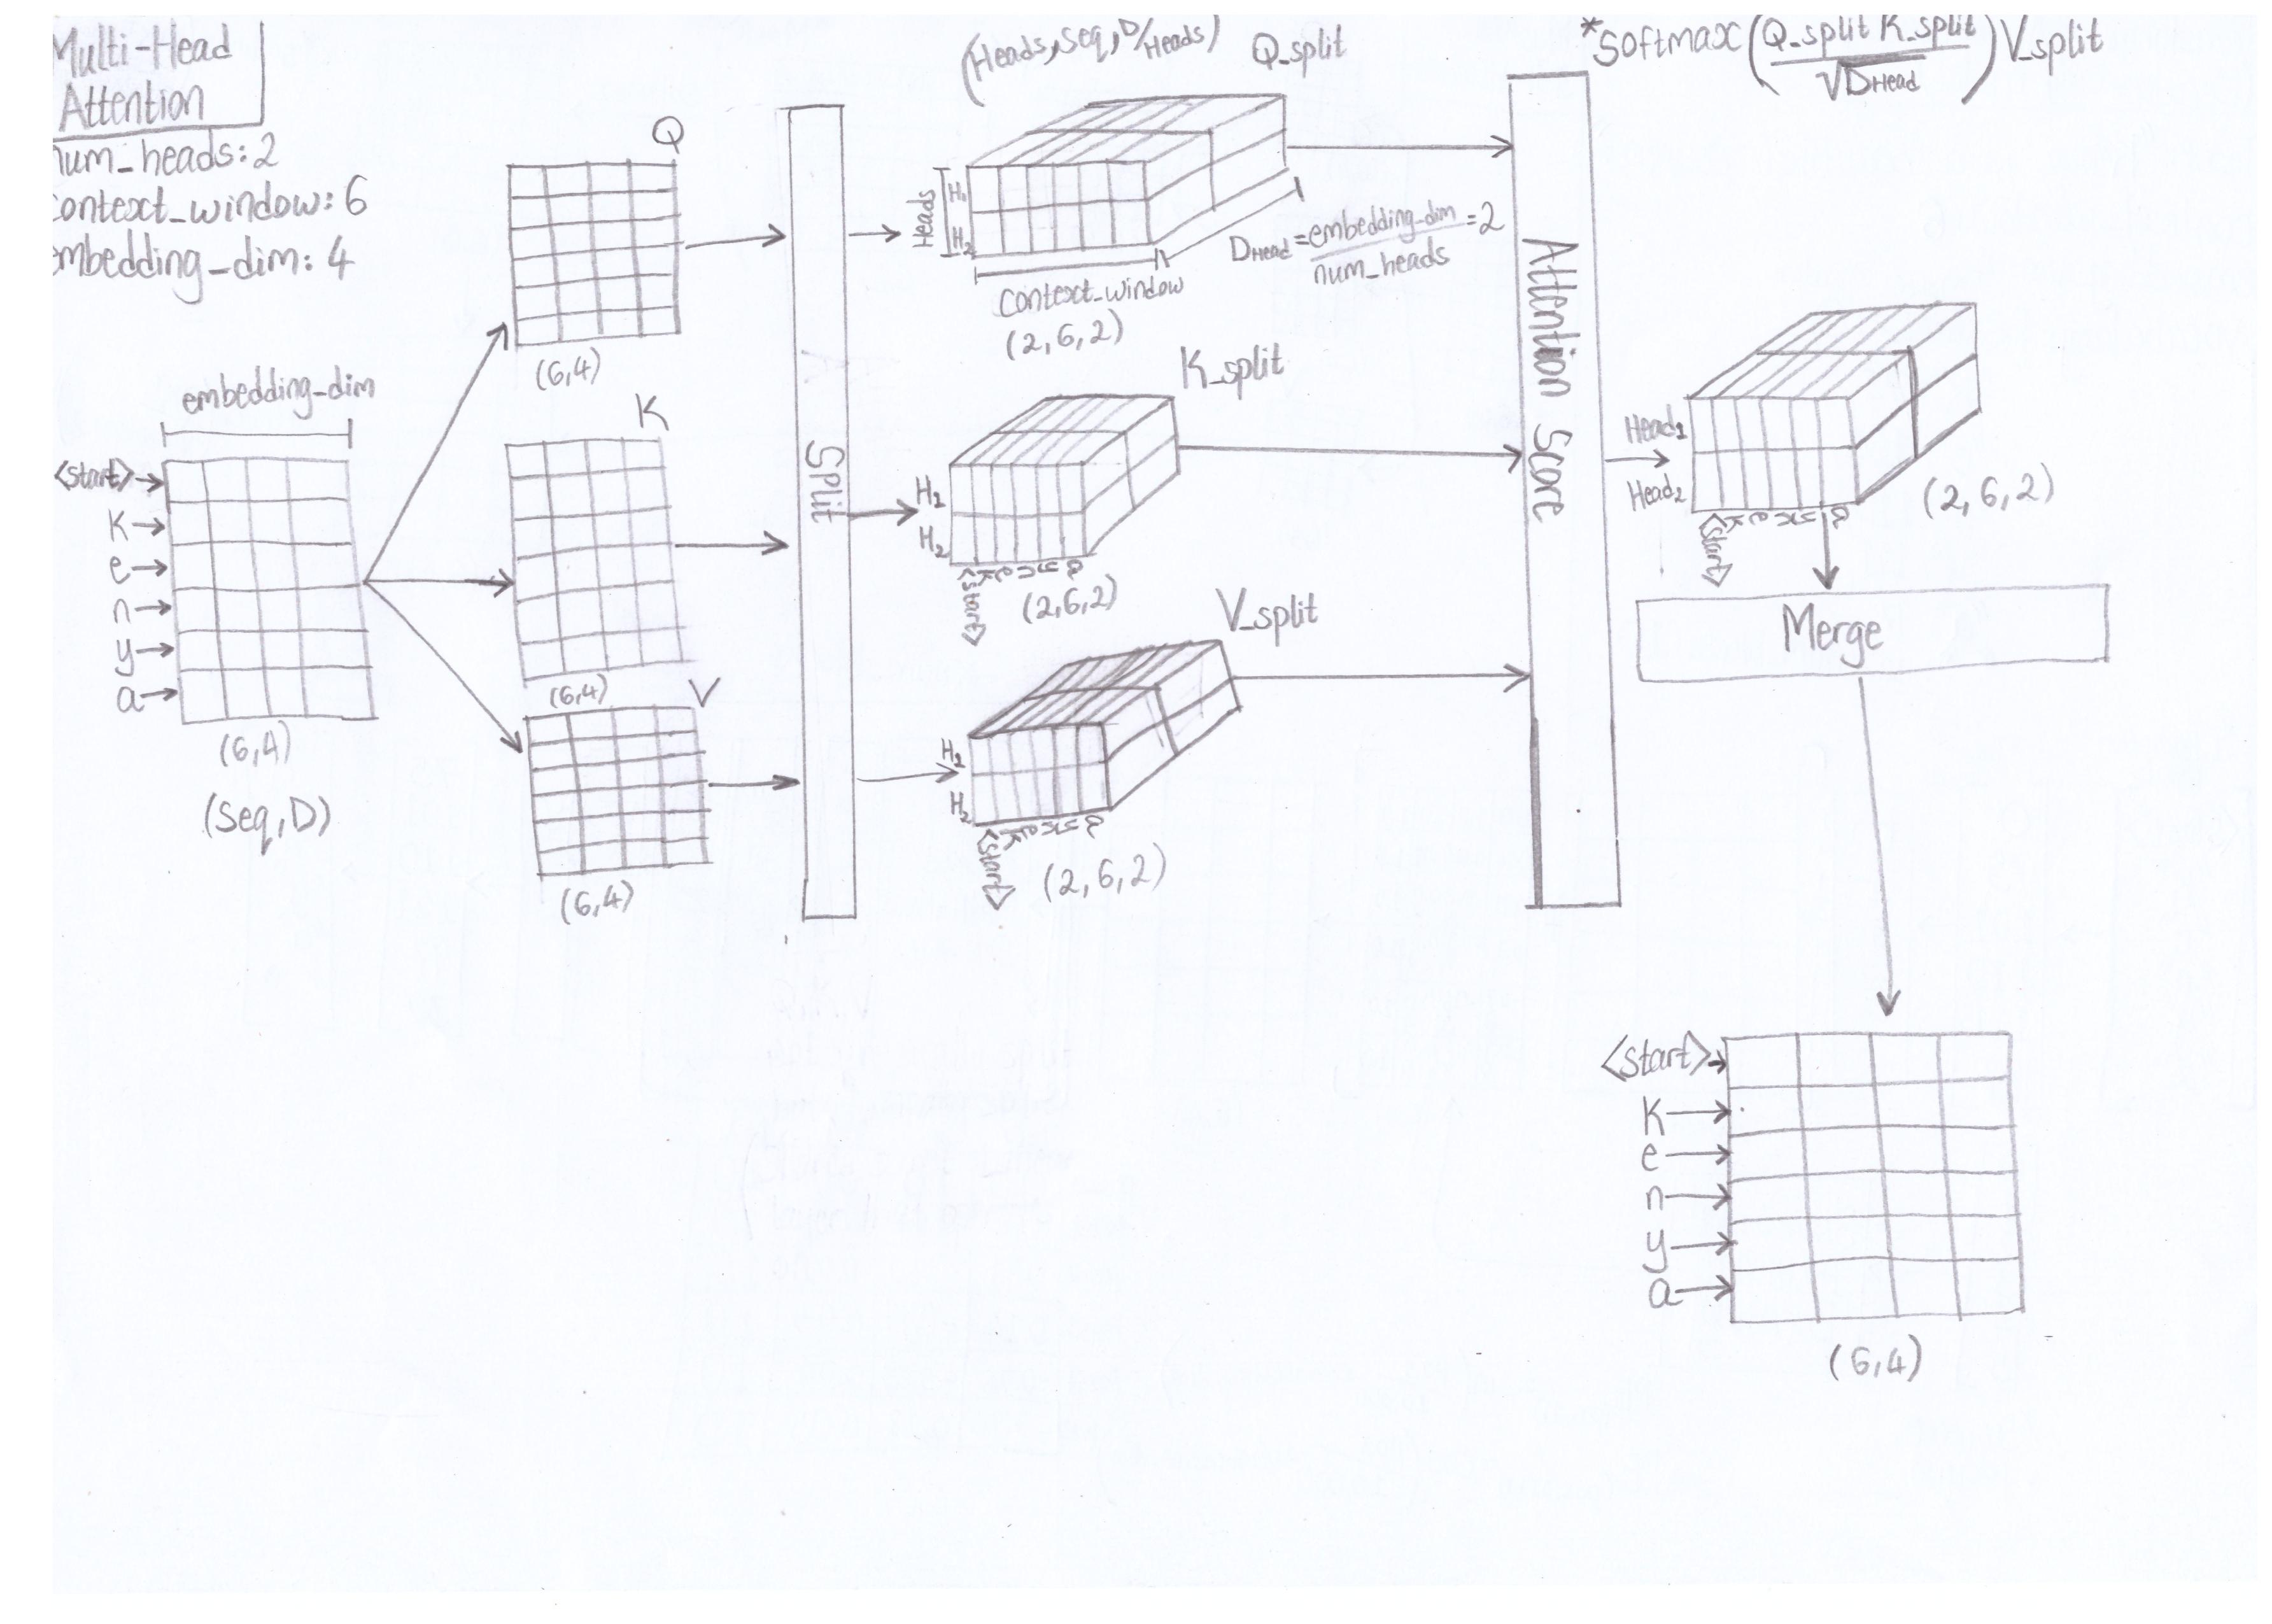 Multi-Head
Attention
num_heads:2
context_window:6
embedding_dim: 4
embedding_dim
<start>
K
e
n
y
a
(6,4)
(Seq,D)
Q
(6,4)
K
(6,4)
V
(6,4)
Split
(Heads,Seq,D/Heads)
Q_split
Heads
H1
H2
context_window
(2,6,2)
DHead=embedding_dim=2
num_heads
K_split
H1
H2
<start>
K
e
n
y
a
(2,6,2)
V_split
H1
H2
<start>
K
e
n
y
a
(2,6,2)
Attention Score
*Softmax(Q_split K_split)V_split
√DHead
Head1
Head2
<start>
K
e
n
y
a
(2,6,2)
Merge
<start>
K
e
n
y
a
(6,4)